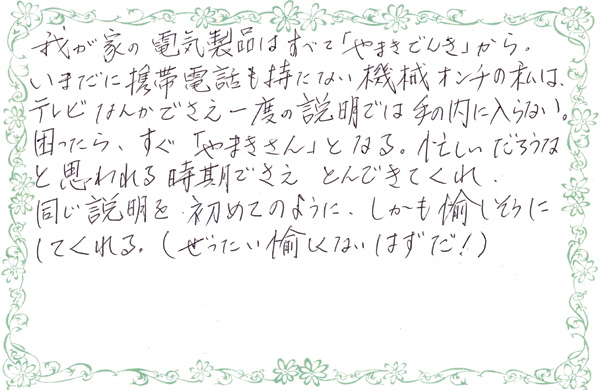 我が家の電気製品はすべて「やまきでんき」から。
いまだに携帯電話も持たない機械オンチの私は、
テレビなんかでさえ一度の説明では手の内に入らない。
困ったら、すぐ「やまきさん」となる。忙しいだろうな
と思われる時期でさえ とんできてくれ、
同じ説明を初めてのように、しかも愉しそうに
してくれる。(ぜったい愉しくないはずだ!)